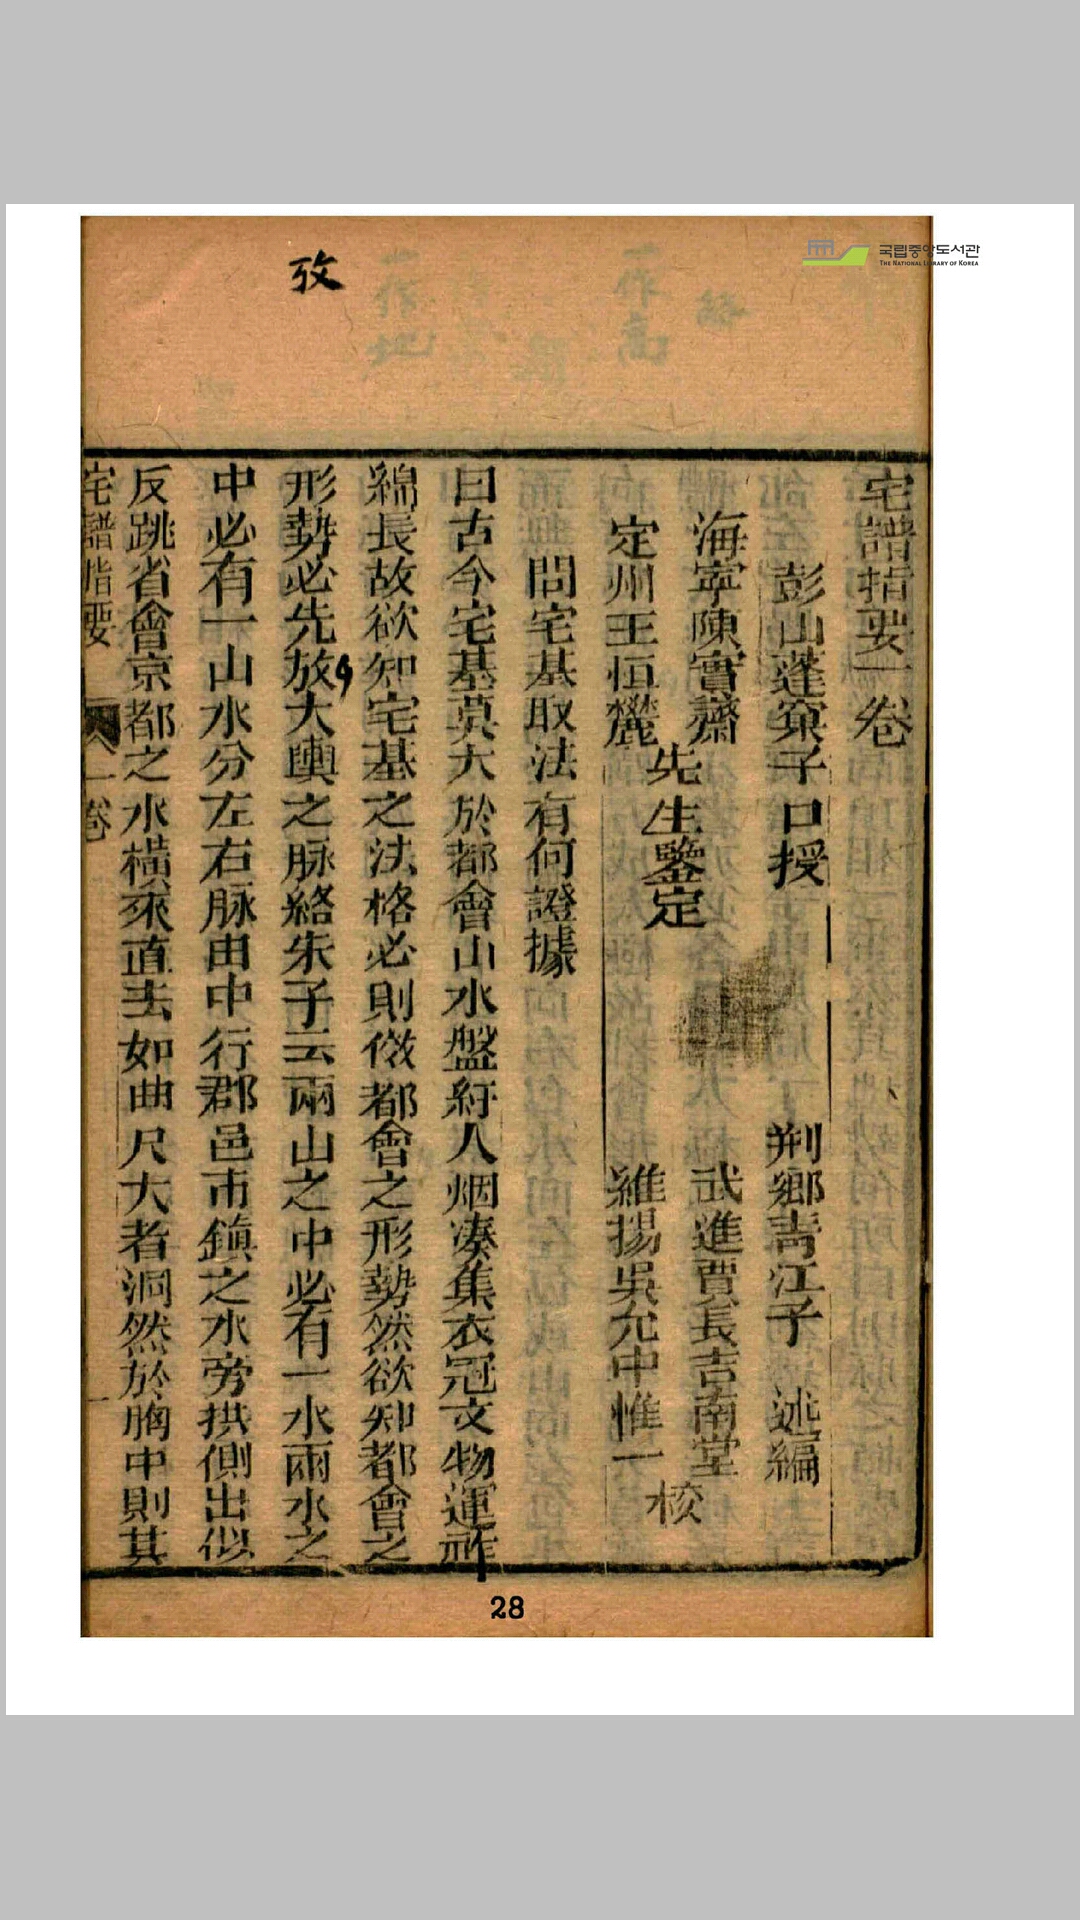 국립중앙도서관
THE NATIONAL LIBRARY OF KOREA
攷
宅譜指要一卷
彭山蓬窠子口授 荆鄉靑江子 述編
海寧陳實齋
定州王恒麓
先生鑒定
武進賈長吉南堂
維揚吳允中惟一
校
問宅基取法有何證據
曰古今宅基莫大於都會山水盤紆人烟湊集衣冠文物運祚
綿長故欲知宅基之法格必則傚都會之形勢然欲知都會之
形勢必先放大輿之脉絡朱子云兩山之中必有一水兩水之
中必有一山水分左右脉由中行郡邑市鎮之水旁拱側出似
反跳省會京都之水橫來直去如曲尺大者洞然於胸中則其
宅譜指要 一卷 一
28